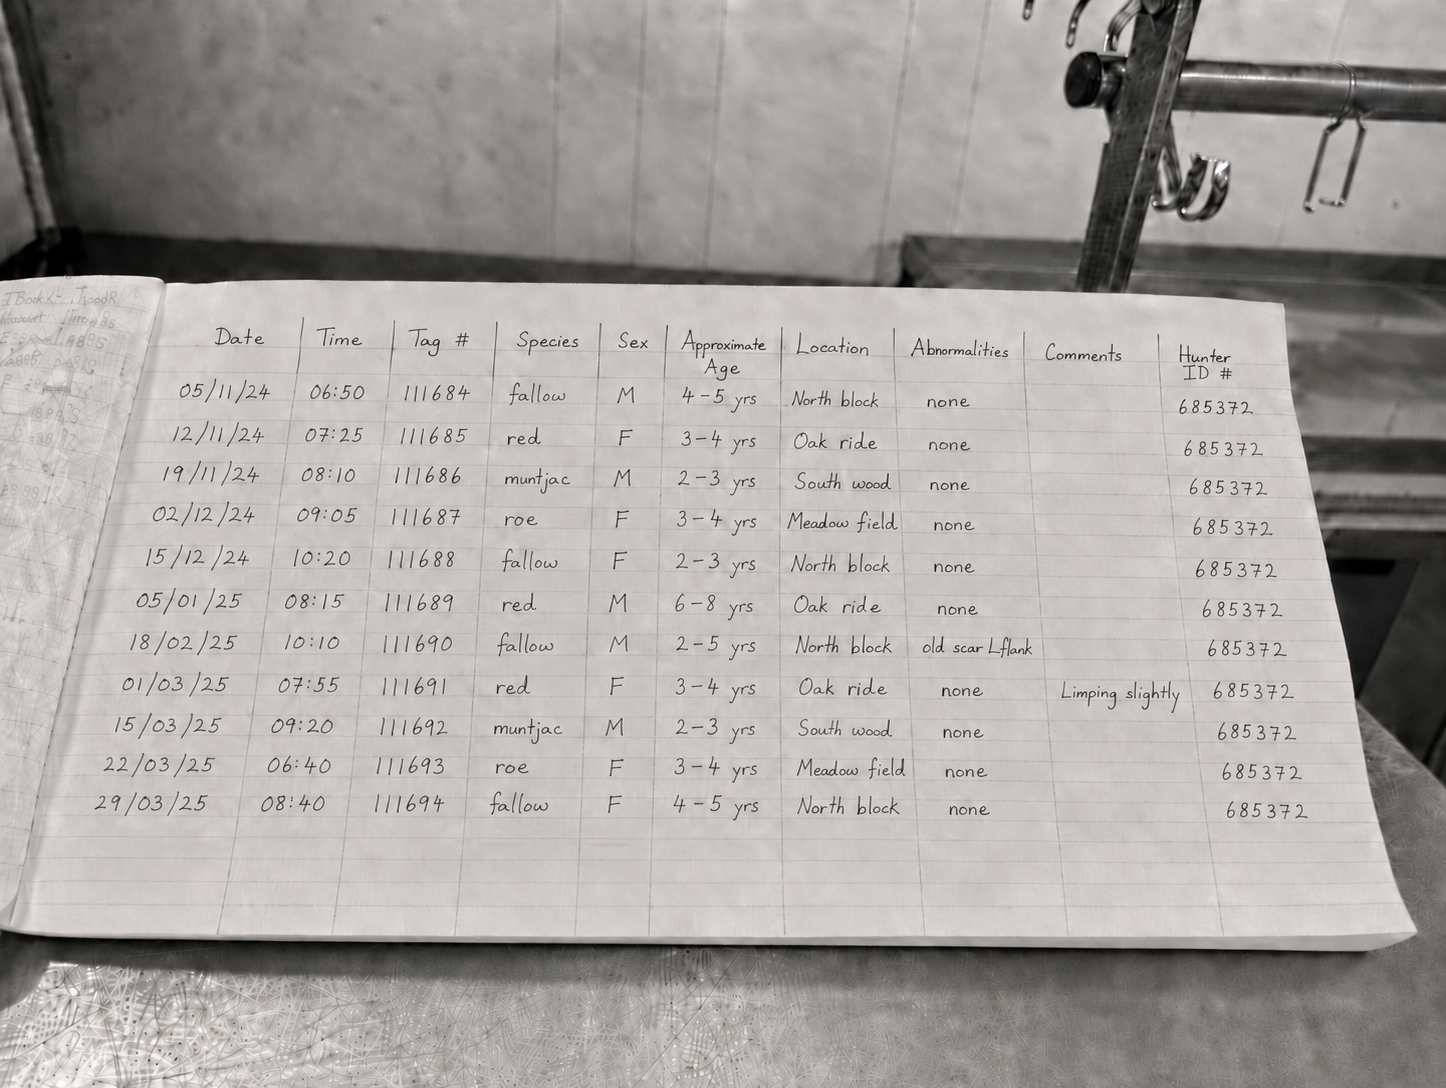 Date Time Tag # Species Sex Approximate Age Location Abnormalities Comments Hunter ID #
05/11/24 06:50 111684 fallow M 4-5 yrs North block none 685372
12/11/24 07:25 111685 red F 3-4 yrs Oak ride none 685372
19/11/24 08:10 111686 muntjac M 2-3 yrs South wood none 685372
02/12/24 09:05 111687 roe F 3-4 yrs Meadow field none 685372
15/12/24 10:20 111688 fallow F 2-3 yrs North block none 685372
05/01/25 08:15 111689 red M 6-8 yrs Oak ride none 685372
18/02/25 10:10 111690 fallow M 2-5 yrs North block old scar L flank 685372
01/03/25 07:55 111691 red F 3-4 yrs Oak ride none Limping slightly 685372
15/03/25 09:20 111692 muntjac M 2-3 yrs South wood none 685372
22/03/25 06:40 111693 roe F 3-4 yrs Meadow field none 685372
29/03/25 08:40 111694 fallow F 4-5 yrs North block none 685372